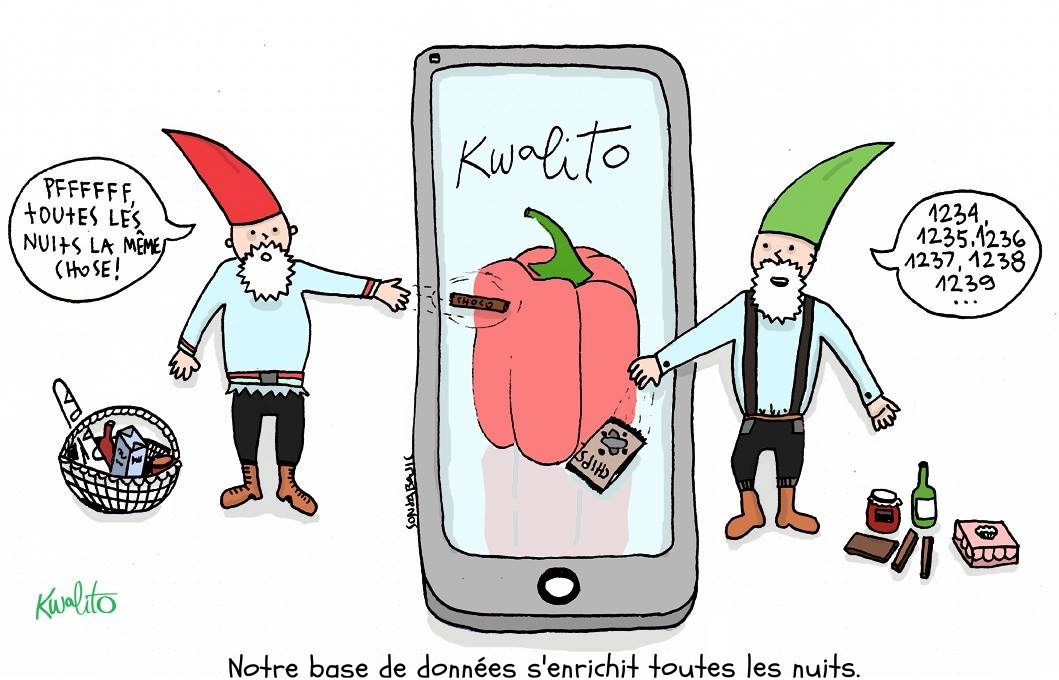 PFFFFFF,
TOUTES LES
NUITS LA MÊME
CHOSE!
Kwalito
CHOCO
CHIPS
1234,
1235,1236
1237, 1238
1239
...
SONIA BAJIC
Kwalito
Notre base de données s'enrichit toutes les nuits.